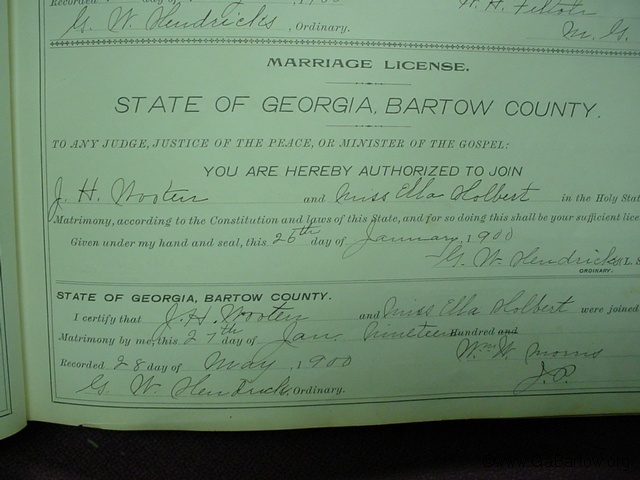 Recorded day of 1900 W. H. Felton
G. W. Hendricks, Ordinary. M. G.
MARRIAGE LICENSE.
STATE OF GEORGIA, BARTOW COUNTY.
TO ANY JUDGE, JUSTICE OF THE PEACE, OR MINISTER OF THE GOSPEL:
YOU ARE HEREBY AUTHORIZED TO JOIN
J. H. Wooten and Miss Ella Holbert in the Holy Stat
Matrimony, according to the Constitution and laws of this State, and for so doing this shall be your sufficient lice
Given under my hand and seal, this 26th day of January, 1900
G. W. Hendricks [L. S
ORDINARY.
STATE OF GEORGIA, BARTOW COUNTY.
I certify that J. H. Wooten and Miss Ella Holbert were joined
Matrimony by me, this 27th day of Jan. Nineteen Hundred and
Wm. W. Morris
Recorded 28 day of May, 1900
J. P.
G. W. Hendricks, Ordinary.